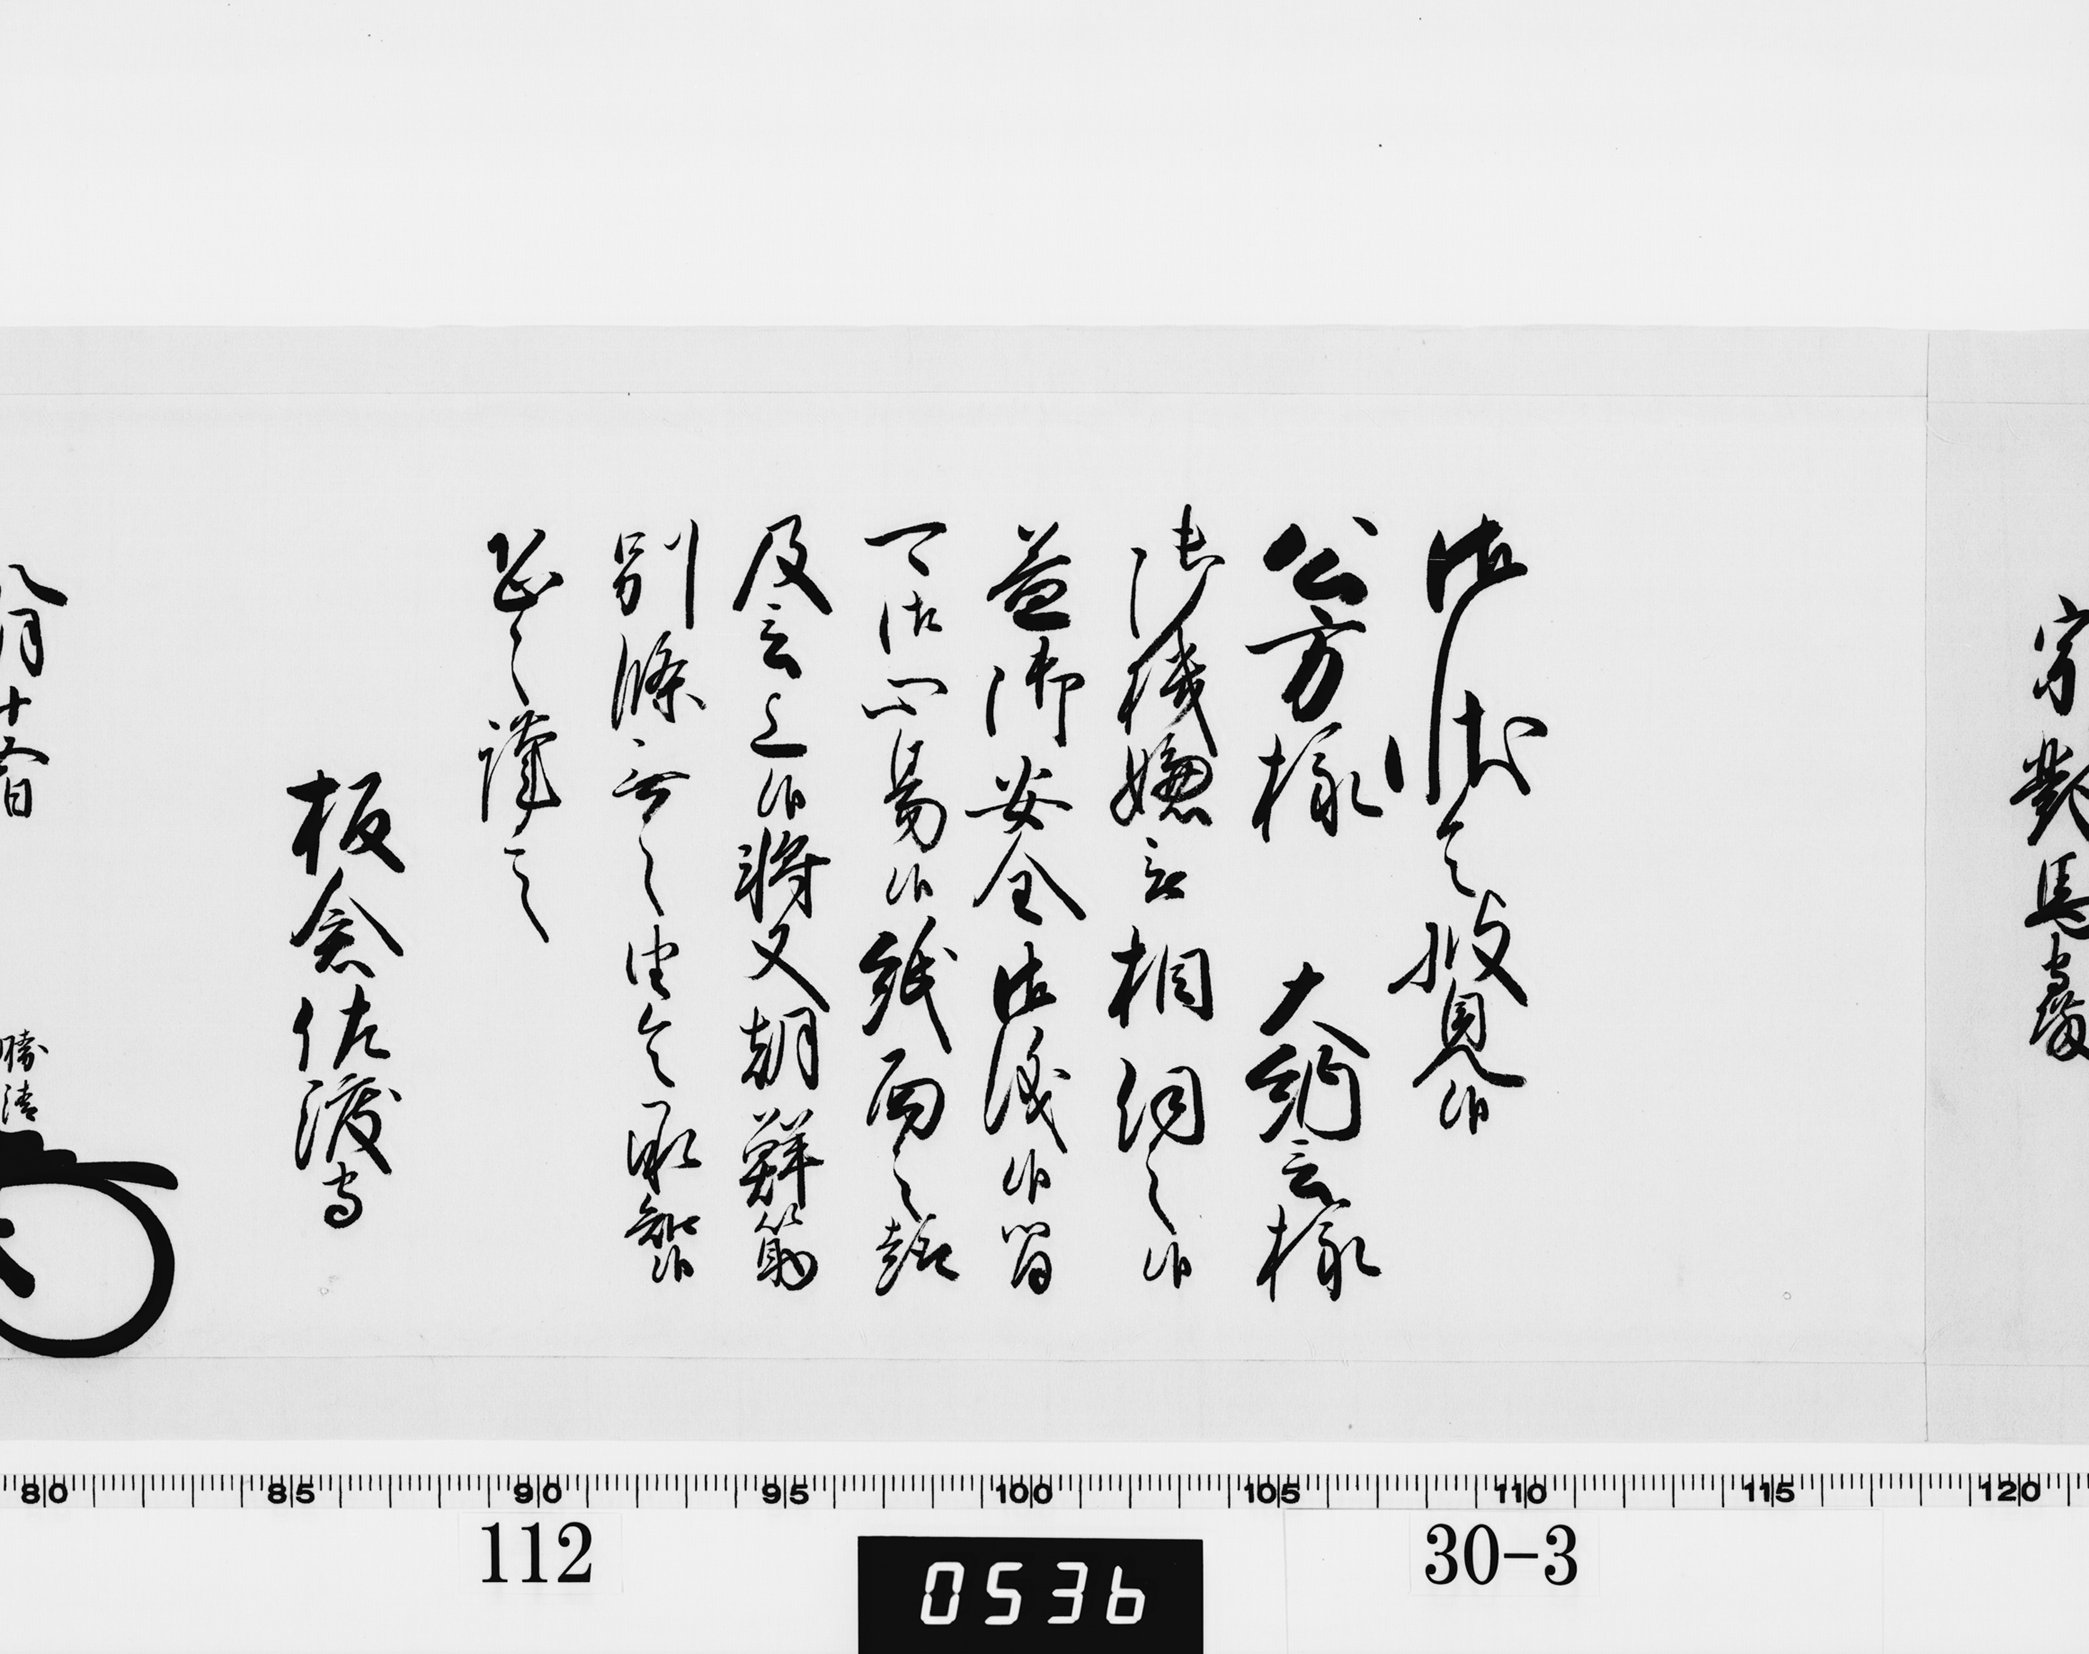 宗對馬守殿
御状令披見候
公方様 大納言様
御機嫌之御様子被相伺之候
益御安全御儀候間
可御心易候紙面之趣
及言上候将又朝鮮筋
別條無之由令承知候
恐々謹言
板倉佐渡守
八月十五日
勝清
80 85 90 95 100 105 110 115 120
112
0536
30-3